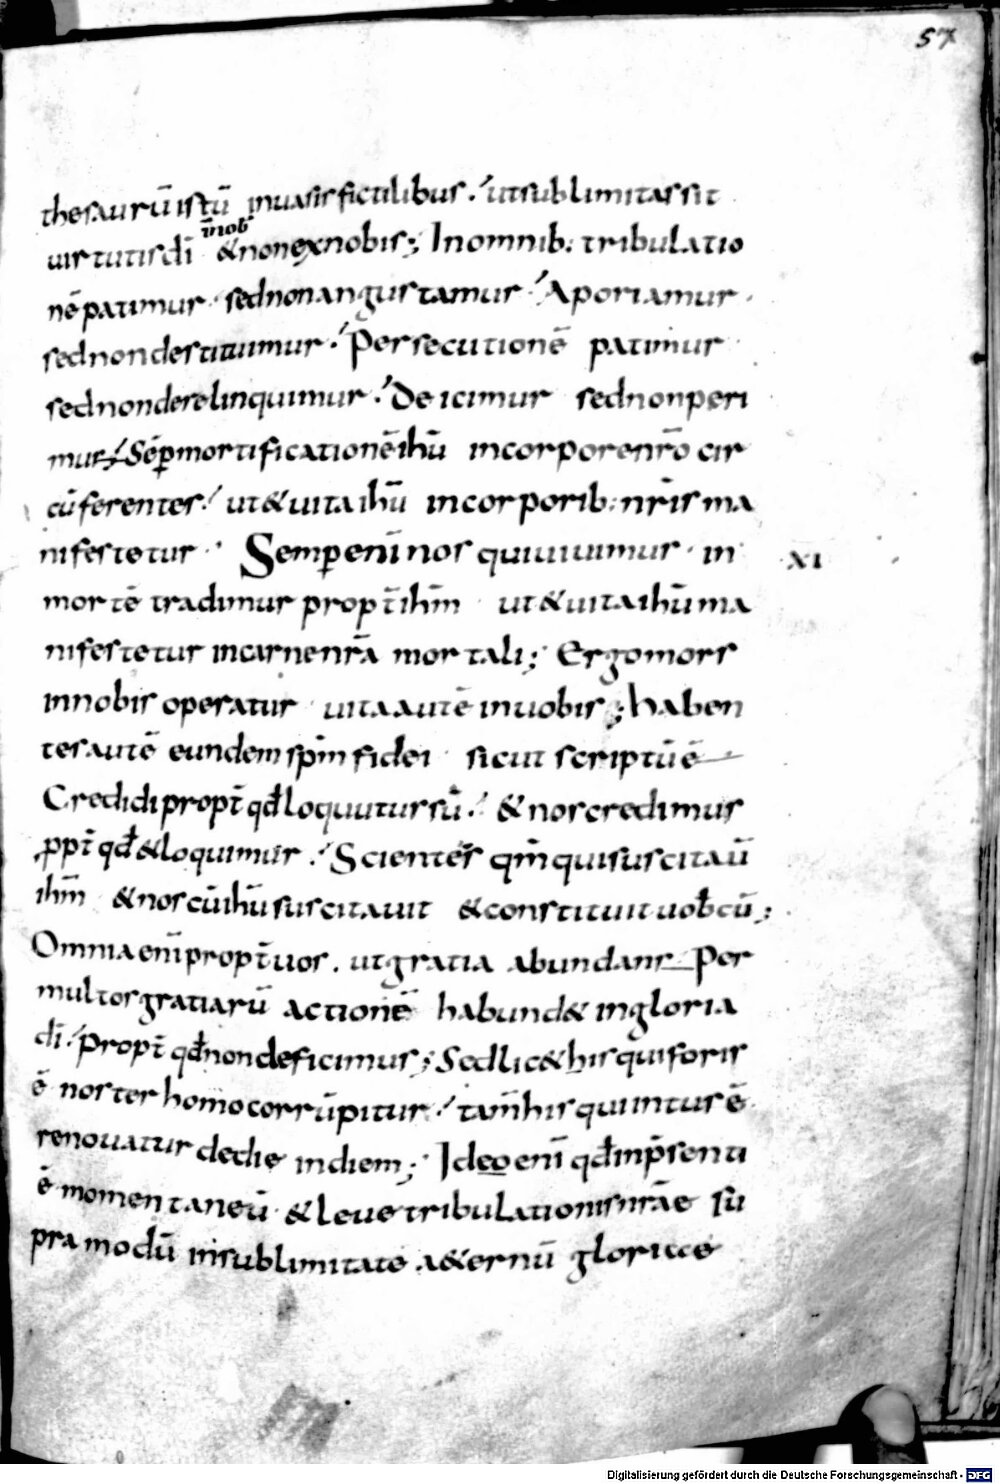 57
thesaurū istū in uasis fictilibus. ut sublimitas sit
uirtutis dī in nob̄ & non ex nobis; In omnib: tribulatio
nē patimur. sed non angustamur. Aporiamur.
sed non destituimur. Persecutionē patimur
sed non derelinquimur. Deicimur sed non peri
mur; Sēp mortificationē ihū in corpore nr̄o cir
cūferentes. ut & uita ihū in corporib: nr̄is ma
nifestetur. Semper enī nos qui uiuimur. in XI
mortē tradimur propt̄ ihm̄ ut & uita ihū ma
nifestetur in carne nr̄a mortali; Ergo mors
in nobis operatur uita autē in uobis; haben
tes autē eundem spm̄ fidei sicut scriptū ē
Credidi propt̄ qd̄ loquutus sū. & nos credimus
ppt̄ qd̄ & loquimur. Scientes qm̄ qui suscitauī
ihm̄ & nos cū ihū suscitauit & constituit uob̄cū;
Omnia enī propt̄ uos. ut gratia abundans Per
multos gratiarū actionē habund& in gloria
dī. Propt̄ qd̄ non deficimus; Sed lic& his qui foris
ē noster homo corrūpitur. tam̄ his qui intus ē
renouatur de die in diem; Ideo enī qd̄ in p̄senti
ē momentaneū & leue tribulationis nr̄ae sū
pra modū in sublimitate a&ernū gloriae
Digitalisierung gefördert durch die Deutsche Forschungsgemeinschaft - DFG